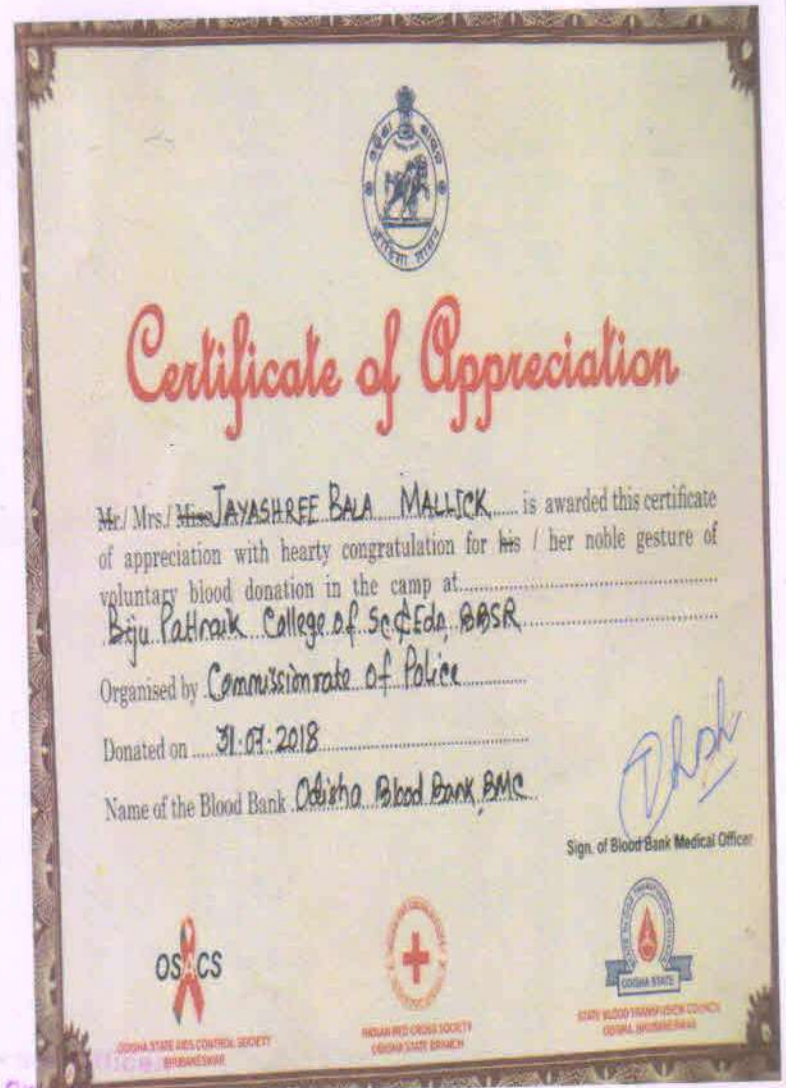 Certificate of Appreciation
Mr./ Mrs./ Miss JAYASHREE BALA MALLICK is awarded this certificate
of appreciation with hearty congratulation for his / her noble gesture of
voluntary blood donation in the camp at
Biju Pattnaik College of Sc & Edn, BBSR
Organised by Commissionrate of Police
Donated on 31.07.2018
Name of the Blood Bank Odisha Blood Bank, BMC
Sign. of Blood Bank Medical Officer
OSACS
ODISHA STATE AIDS CONTROL SOCIETY
BHUBANESWAR
INDIAN RED CROSS SOCIETY
ODISHA STATE BRANCH
ODISHA STATE
STATE BLOOD TRANSFUSION COUNCIL
ODISHA, BHUBANESWAR